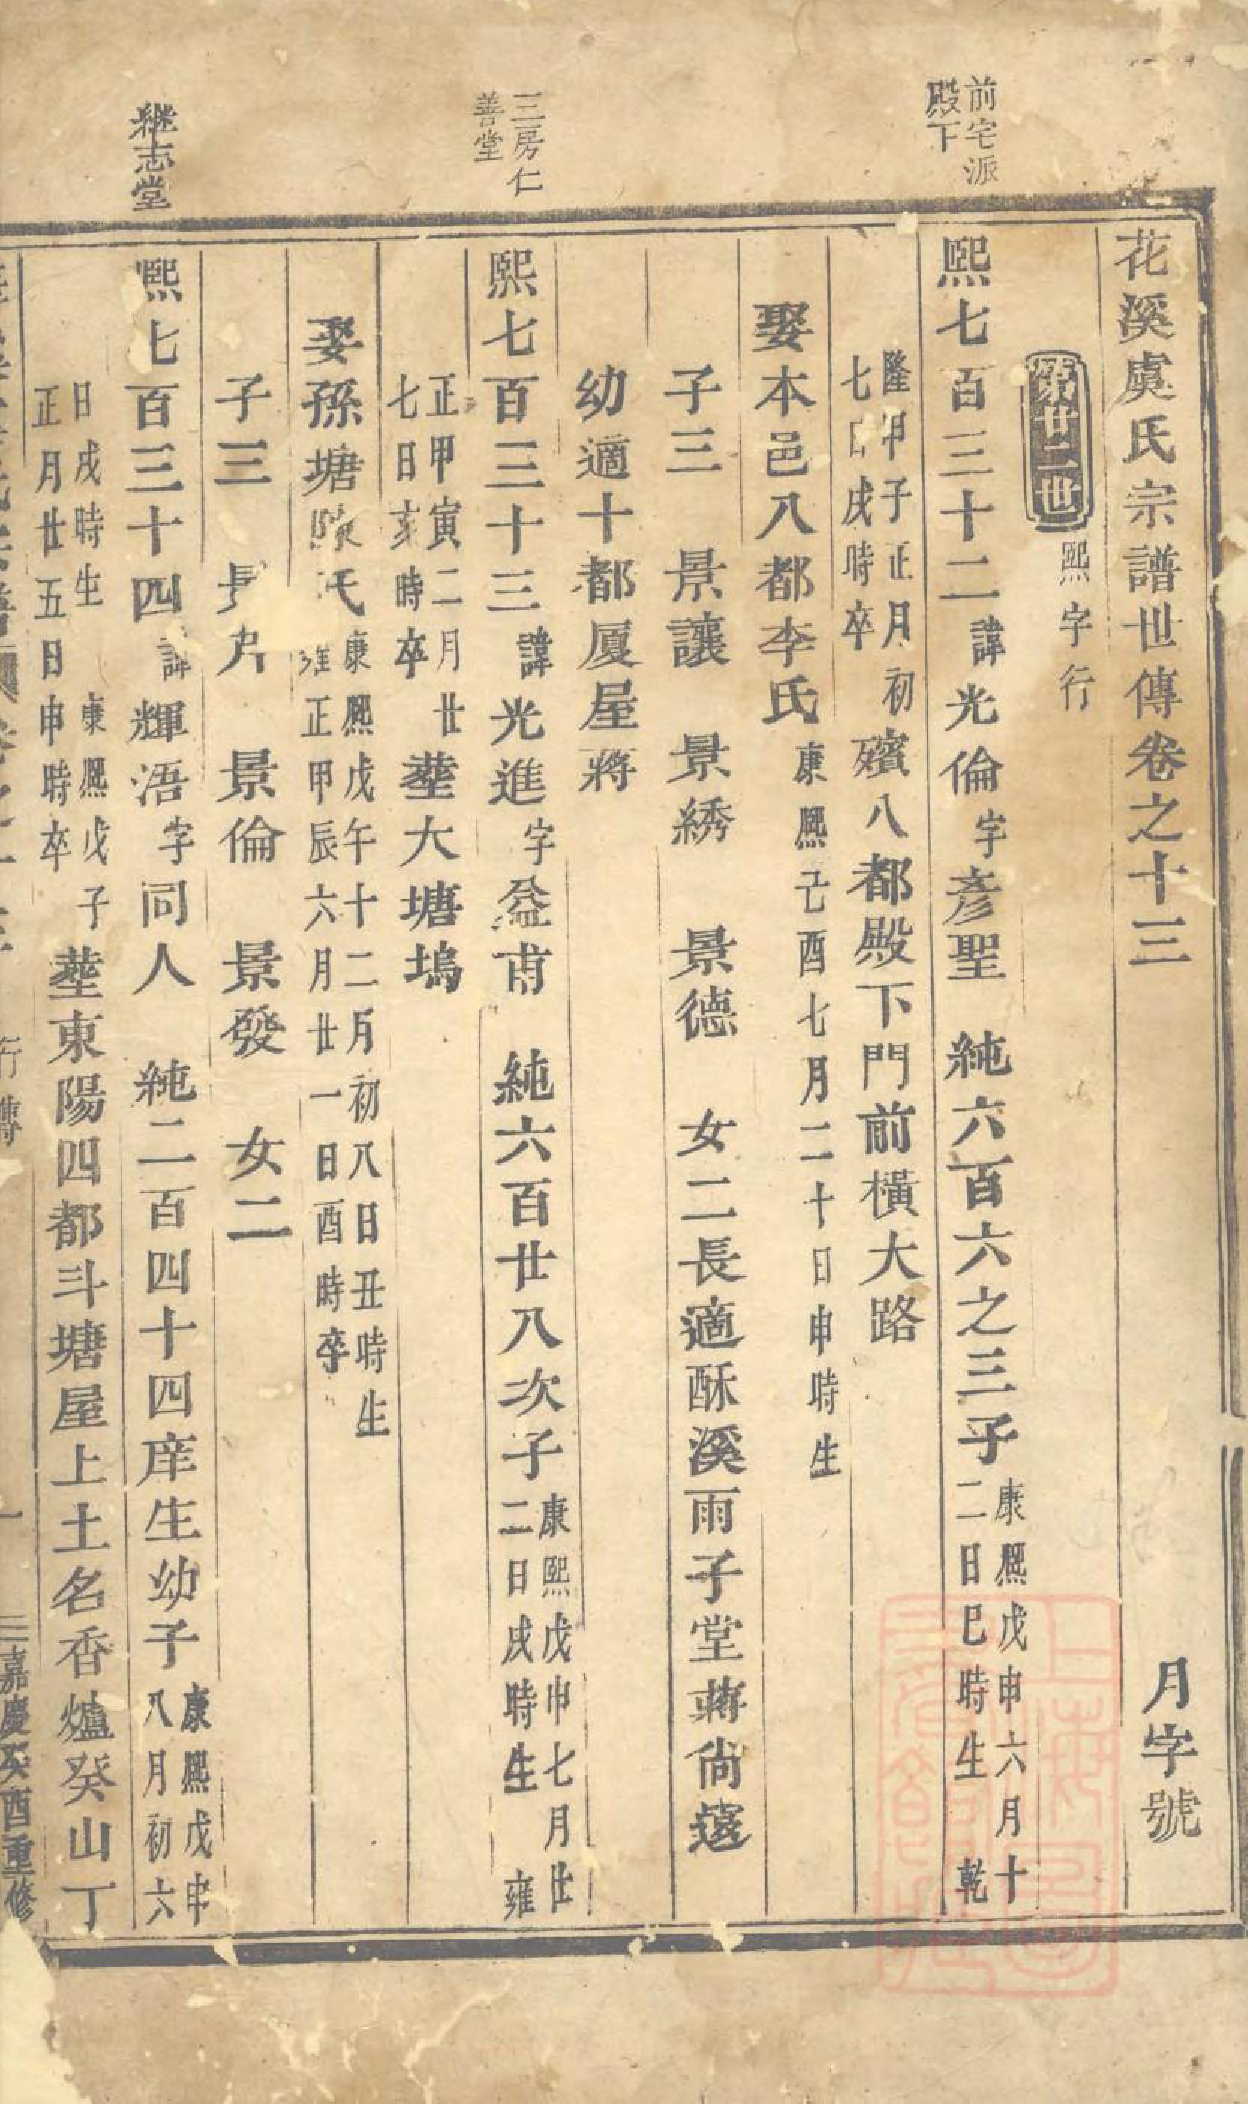 花溪虞氏宗譜世傳卷之十三 月字號
第廿二世 熙字行
前宅派
殿下
熙七百三十二諱光倫字彥聖 純六百六之三子 康熙戊申六月十
二日巳時生 乾
隆甲子正月初
七日戌時卒 殯八都殿下門前橫大路
娶本邑八都李氏 康熙己酉七月二十日申時生
子三 景讓 景綉 景德 女二長適酥溪雨子堂蔣尙遠
幼適十都厦屋蔣
三房仁
善堂
熙七百三十三諱光進字益甫 純六百廿八次子 康熙戊申七月廿
二日戌時生 雍
正甲寅二月廿
七日亥時卒 塟大塘塢
娶孫塘陳氏 康熙戊午十二月初八日丑時生
雍正甲辰六月廿一日酉時卒
子三 景倫 景發 女二
継志堂
熙七百三十四諱輝浯字同人 純二百四十四庠生幼子 康熙戊申
八月初六
日戌時生 康熙戊子
正月廿五日申時卒 塟東陽四都斗塘屋上土名香爐癸山丁
行傳 一 三 嘉慶癸酉重修